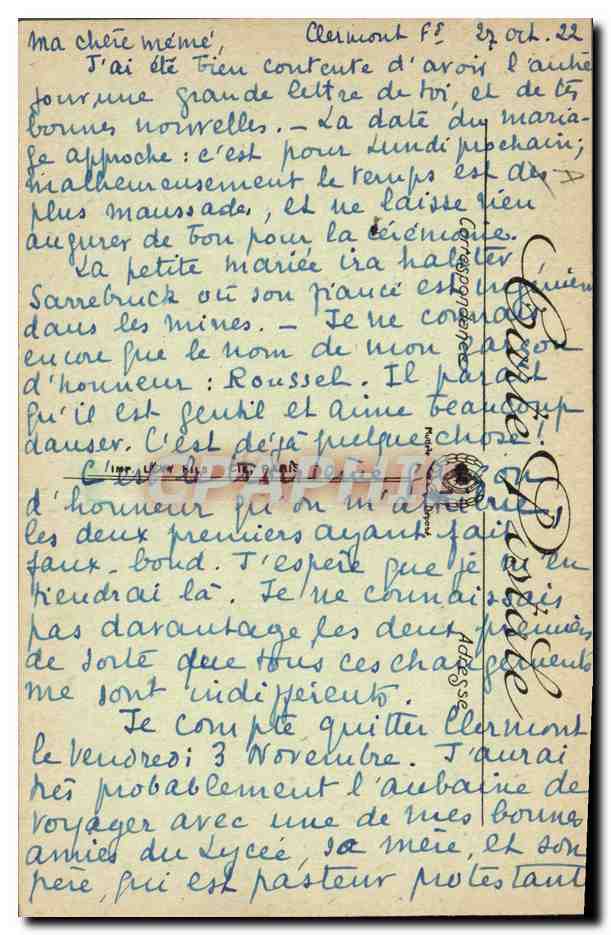 Clermont Fd 27 oct. 22
Ma chère mémé,
J'ai été bien contente d'avoir l'autre
jour, une grande lettre de toi, et de tes
bonnes nouvelles. – La date du maria-
ge approche : c'est pour Lundi prochain ;
malheureusement le temps est des
plus maussades, et ne laisse rien
augurer de bon pour la cérémonie.
La petite mariée ira habiter
Sarrebruck où son fiancé est ingénieur
dans les mines. – Je ne connais
encore que le nom de mon garçon
d'honneur : Roussel. Il parait
qu'il est gentil et aime beaucoup
danser. C'est déjà quelque chose !
C'est le garçon
d'honneur qu'on m'a
les deux premiers ayant fait
faux-bond. J'espère que je m'en
tiendrai là. Je ne connaissais
pas davantage les deux premiers
de sorte que tous ces changements
me sont indifférents.
Je compte quitter Clermont
le Vendredi 3 Novembre. J'aurai
très probablement l'aubaine de
voyager avec une de mes bonnes
amies du Lycée, sa mère, et son
père, qui est pasteur protestant
Carte Postale
Correspondance
Adresse
CPAPHIL